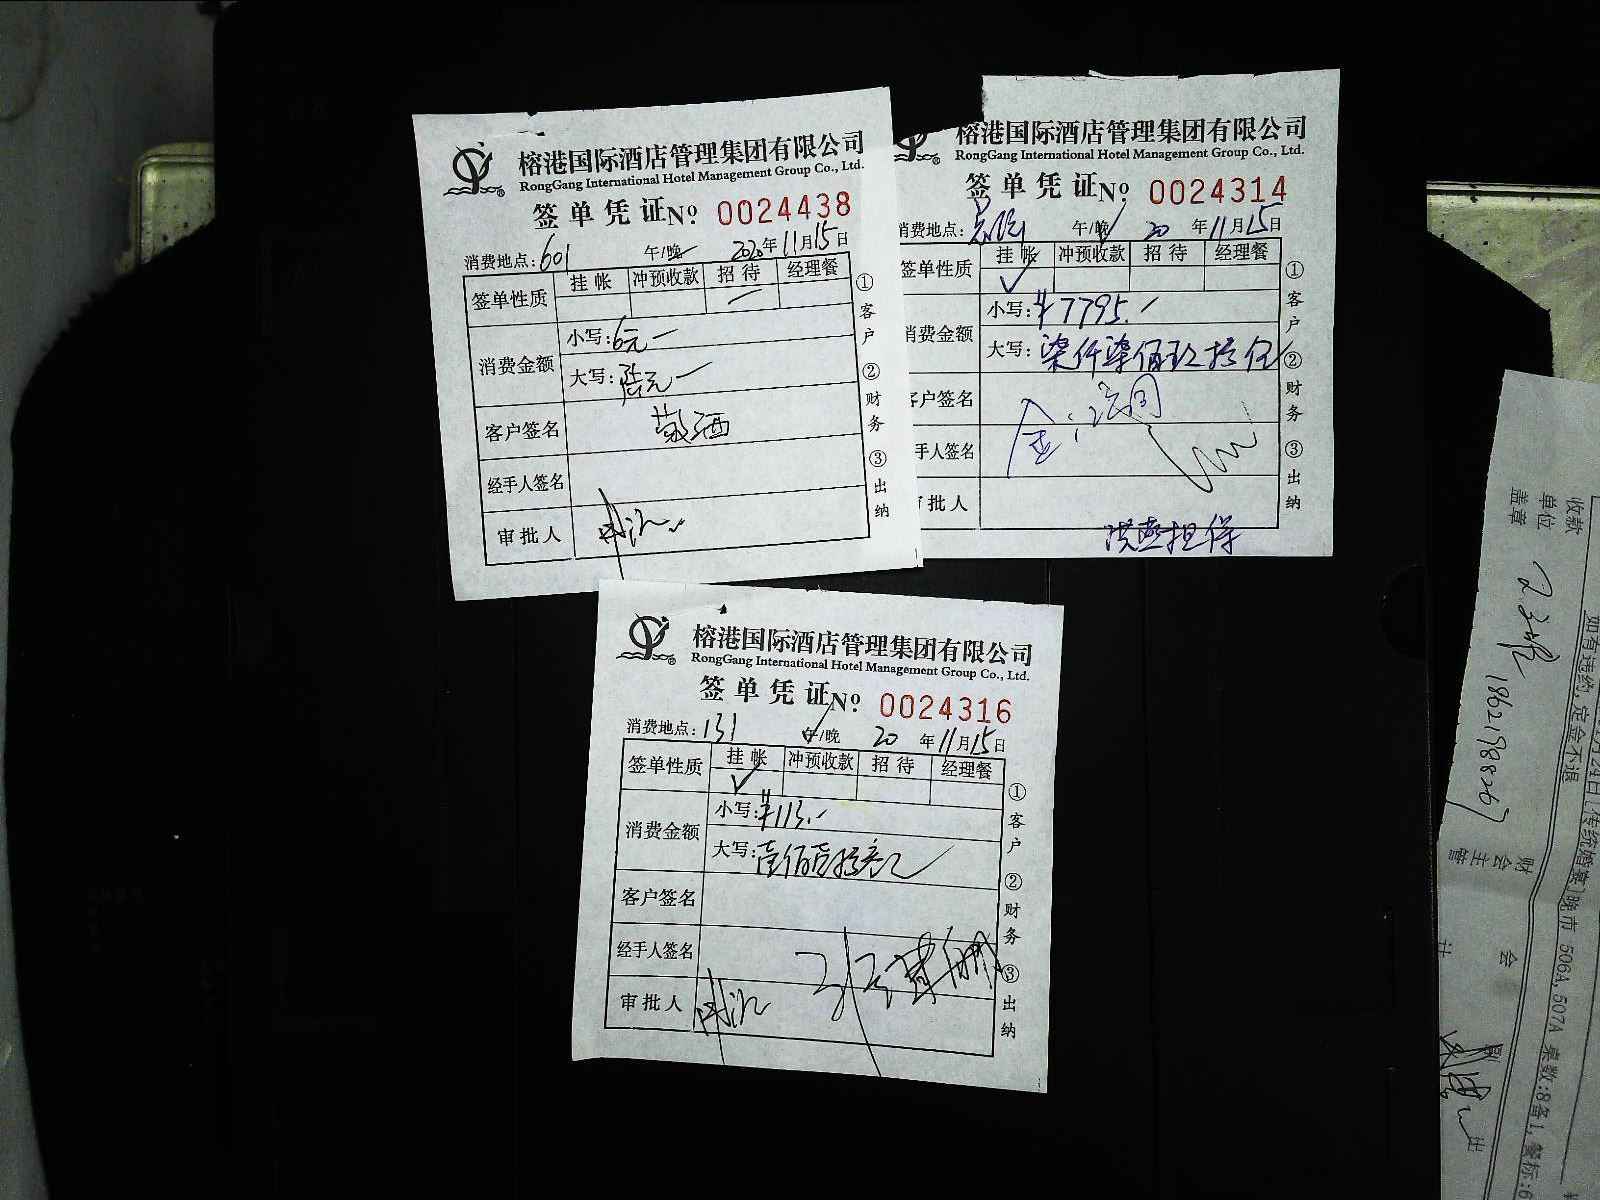 榕港国际酒店管理集团有限公司
RongGang International Hotel Management Group Co., Ltd.
签单凭证 Nº 0024438
消费地点: 601 午/晚 2020年11月15日
签单性质 挂帐 冲预收款 招待 经理餐
消费金额 小写: 6元
大写: 陆元
客户签名 敬酒
经手人签名
审批人
①客户 ②财务 ③出纳
榕港国际酒店管理集团有限公司
RongGang International Hotel Management Group Co., Ltd.
签单凭证 Nº 0024314
消费地点: 午/晚 20年11月15日
签单性质 挂帐 冲预收款 招待 经理餐
✓
消费金额 小写: ¥7795.
大写: 柒仟柒佰玖拾伍
客户签名
手人签名
审批人
担保
①客户 ②财务 ③出纳
榕港国际酒店管理集团有限公司
RongGang International Hotel Management Group Co., Ltd.
签单凭证 Nº 0024316
消费地点: 131 午/晚 20年11月15日
签单性质 挂帐 冲预收款 招待 经理餐
✓
消费金额 小写: ¥113.
大写: 壹佰壹拾叁元
客户签名
经手人签名
审批人
①客户 ②财务 ③出纳
收款单位盖章
财会主管
会计
出
如有违约,定金不退
24日[传统婚宴]晚市 506A,507A 桌数:8备1,餐标:6